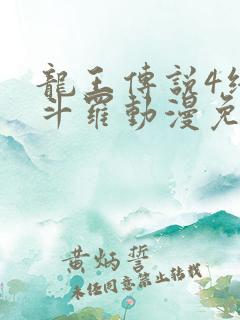 龍王傳說4
斗羅動漫免
黄炳誓
未经同意禁止转载